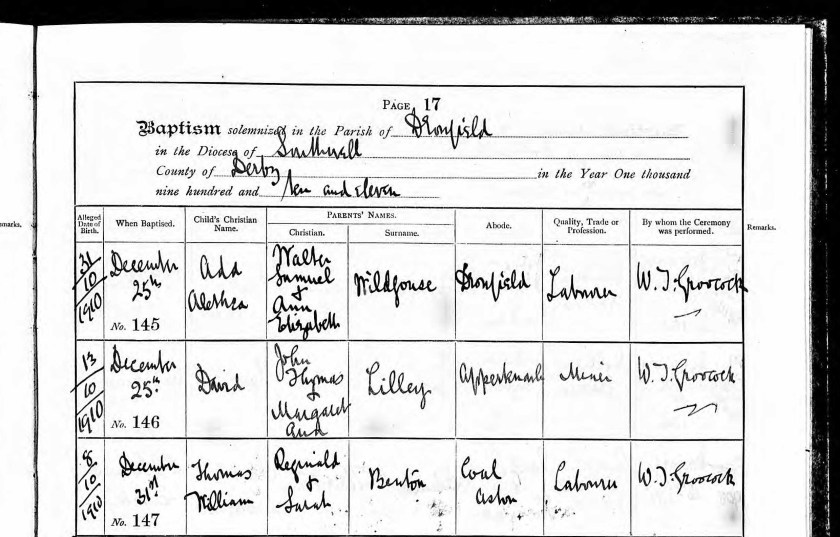 PAGE 17
Baptism solemnized in the Parish of Dronfield
in the Diocese of Southwell
County of Derby in the Year One thousand
nine hundred and ten and eleven
Alleged Date of Birth. When Baptised. Child's Christian Name. PARENTS' NAMES. Christian. Surname. Abode. Quality, Trade or Profession. By whom the Ceremony was performed. Remarks.
31/10/1910 December 25th No. 145 Ada Alethea Walter Samuel & Ann Elizabeth Wildgouse Dronfield Labourer W.J. Groocock
13/10/1910 December 25th No. 146 David John Thomas & Margaret Ann Lilley Apperknowle Miner W.J. Groocock
8/10/1910 December 31st No. 147 Thomas William Reginald & Sarah Benton Coal Aston Labourer W.J. Groocock